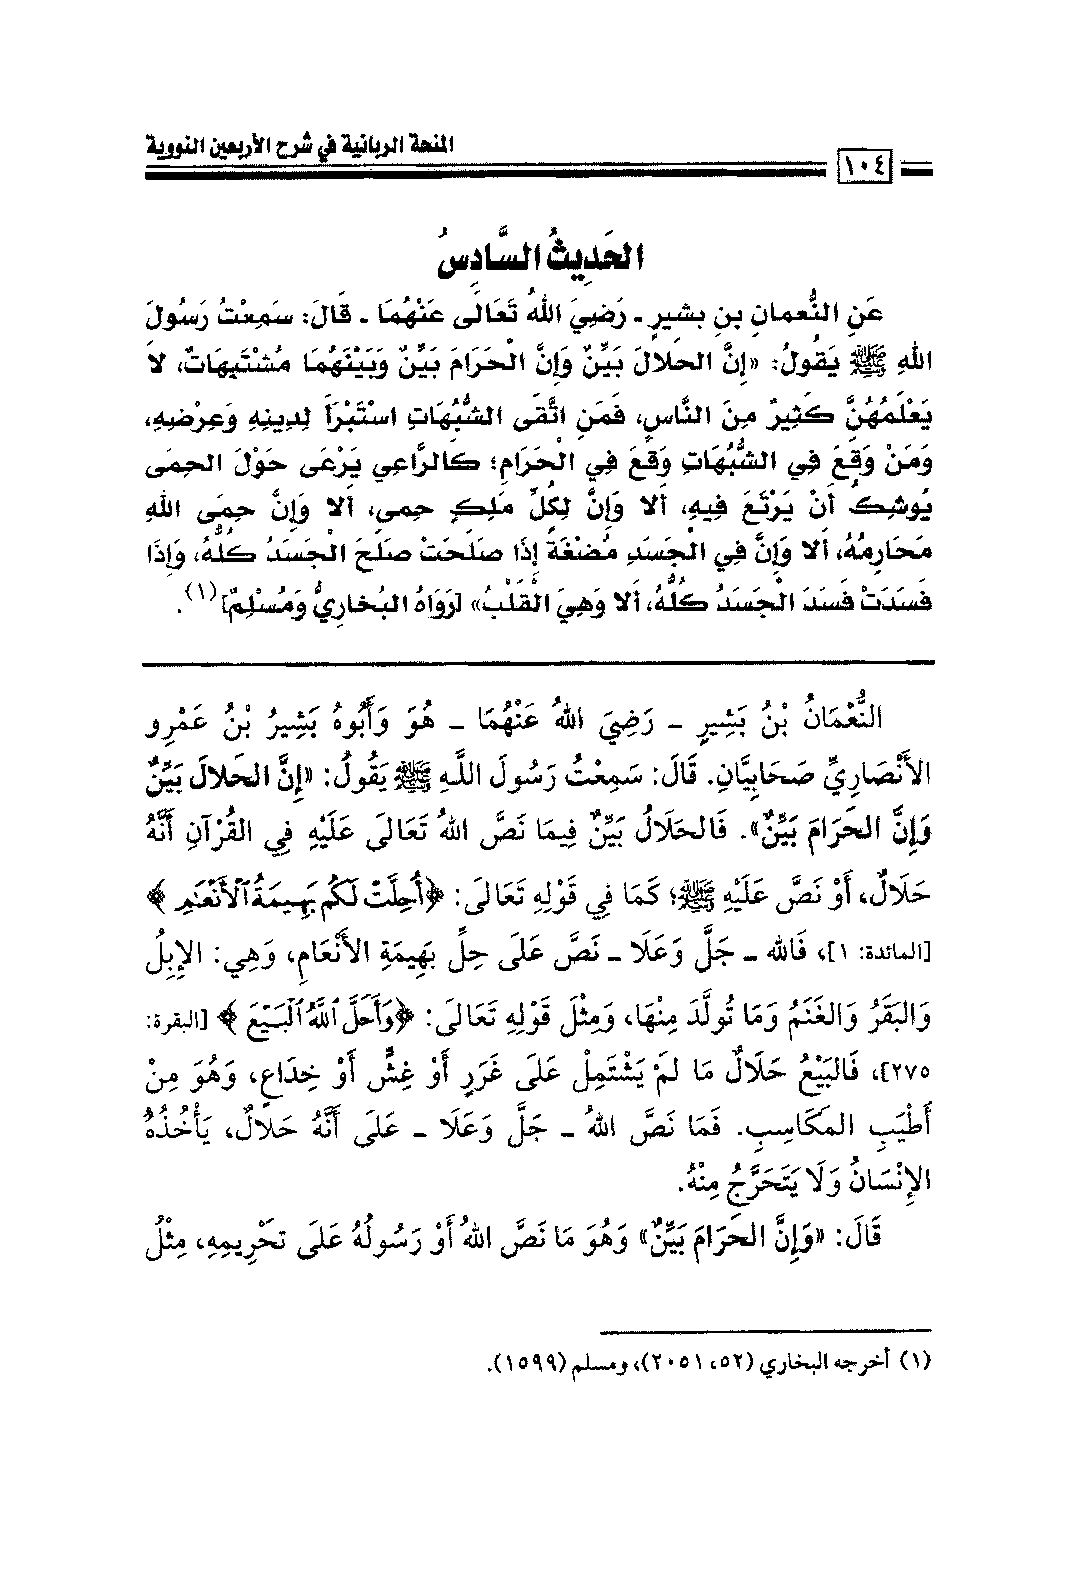 المنحة الربانية في شرح الأربعين النووية
١٠٤
الحَدِيثُ السَّادِسُ
عَنِ النُّعمانِ بنِ بشيرٍ ـ رَضِيَ اللهُ تَعَالَى عَنْهُمَا ـ قَالَ: سَمِعْتُ رَسُولَ
اللهِ ﷺ يَقُولُ: «إنَّ الحلالَ بَيِّنٌ وَإنَّ الْحَرَامَ بَيِّنٌ وَبَيْنَهُمَا مُشْتَبِهَاتٌ، لاَ
يَعْلَمُهُنَّ كَثِيرٌ مِنَ النَّاسِ، فَمَنِ اتَّقَى الشُّبُهَاتِ اسْتَبْرَأَ لِدِينِهِ وَعِرْضِهِ،
وَمَنْ وَقَعَ فِي الشُّبُهَاتِ وَقَعَ فِي الْحَرَامِ؛ كالرَّاعِي يَرْعَى حَوْلَ الحِمَى
يُوشِكُ أنْ يَرْتَعَ فيهِ، ألا وَإنَّ لِكُلِّ مَلِكٍ حِمى، ألا وَإنَّ حِمَى اللهِ
مَحَارِمُهُ، ألا وَإنَّ فِي الْجَسَدِ مُضْغَةً إذَا صَلَحَتْ صَلَحَ الْجَسَدُ كُلُّهُ، وَإذَا
فَسَدَتْ فَسَدَ الْجَسَدُ كُلُّهُ، ألا وَهِيَ الْقَلْبُ» [رَوَاهُ البُخَارِيُّ وَمُسْلِمٌ](١).
النُّعْمَانُ بْنُ بَشِيرٍ ـ رَضِيَ اللهُ عَنْهُمَا ـ هُوَ وَأَبُوهُ بَشِيرُ بْنُ عَمْرِو
الأَنْصَارِيِّ صَحَابِيَّانِ. قَالَ: سَمِعْتُ رَسُولَ اللَّهِ ﷺ يَقُولُ: «إِنَّ الحَلَالَ بَيِّنٌ
وَإِنَّ الحَرَامَ بَيِّنٌ». فَالحَلَالُ بَيِّنٌ فِيمَا نَصَّ اللهُ تَعَالَى عَلَيْهِ فِي القُرْآنِ أَنَّهُ
حَلَالٌ، أَوْ نَصَّ عَلَيْهِ ﷺ؛ كَمَا فِي قَوْلِهِ تَعَالَى: ﴿أُحِلَّتْ لَكُم بَهِيمَةُ ٱلْأَنْعَٰمِ﴾
[المائدة: ١]، فَالله ـ جَلَّ وَعَلَا ـ نَصَّ عَلَى حِلِّ بَهِيمَةِ الأَنْعَامِ، وَهِي: الإِبِلُ
وَالبَقَرُ وَالغَنَمُ وَمَا تُولَّدَ مِنْهَا، وَمِثْلَ قَوْلِهِ تَعَالَى: ﴿وَأَحَلَّ ٱللَّهُ ٱلْبَيْعَ﴾ [البقرة:
٢٧٥]، فَالبَيْعُ حَلَالٌ مَا لَمْ يَشْتَمِلْ عَلَى غَرَرٍ أَوْ غِشٍّ أَوْ خِدَاعٍ، وَهُوَ مِنْ
أَطْيَبِ المَكَاسِبِ. فَمَا نَصَّ اللهُ ـ جَلَّ وَعَلَا ـ عَلَى أَنَّهُ حَلَالٌ، يَأْخُذُهُ
الإِنْسَانُ وَلَا يَتَحَرَّجُ مِنْهُ.
قَالَ: «وَإِنَّ الحَرَامَ بَيِّنٌ» وَهُوَ مَا نَصَّ اللهُ أَوْ رَسُولُهُ عَلَى تَحْرِيمِهِ، مِثْلُ
(١) أخرجه البخاري (٥٢، ٢٠٥١)، ومسلم (١٥٩٩).